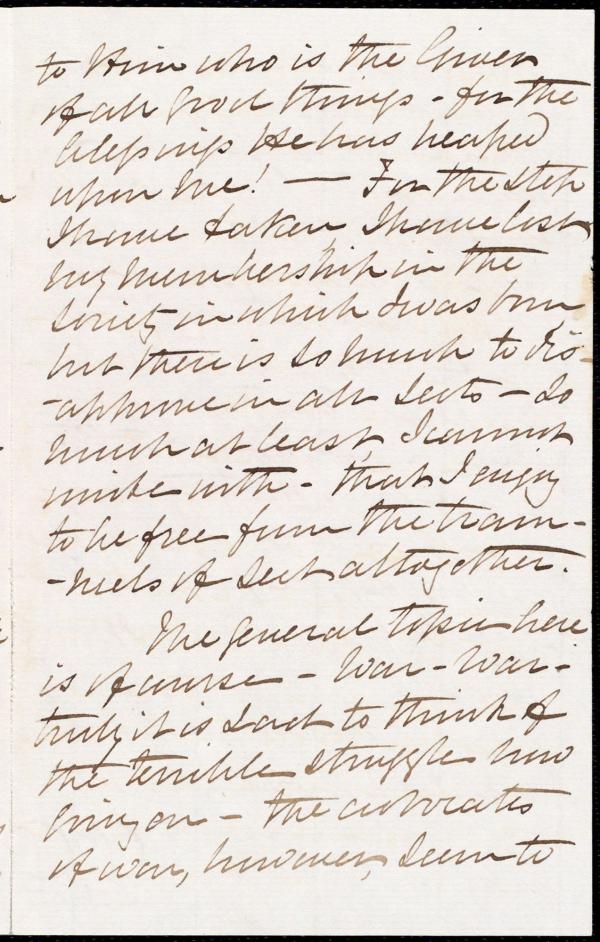 to Him who is the Giver
of all good things - for the
blessings He has heaped
upon me! — For the step
I have taken, I have lost
my membership in the
Society in which I was born
but there is so much to dis-
-approve in all Sects - so
much at least, I cannot
unite with - that I enjoy
to be free from the tram-
-mels of Sect altogether.
The general topic here
is of course - War - War -
truly it is sad to think of
the terrible struggle now
going on - the advocates
of war, however, seem to